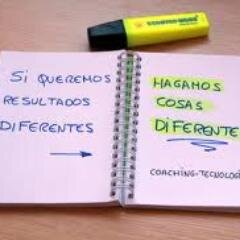 SI QUEREMOS
RESULTADOS
DIFERENTES
HAGAMOS
COSAS
DIFERENTE
COACHING-TECNOLOGÍ